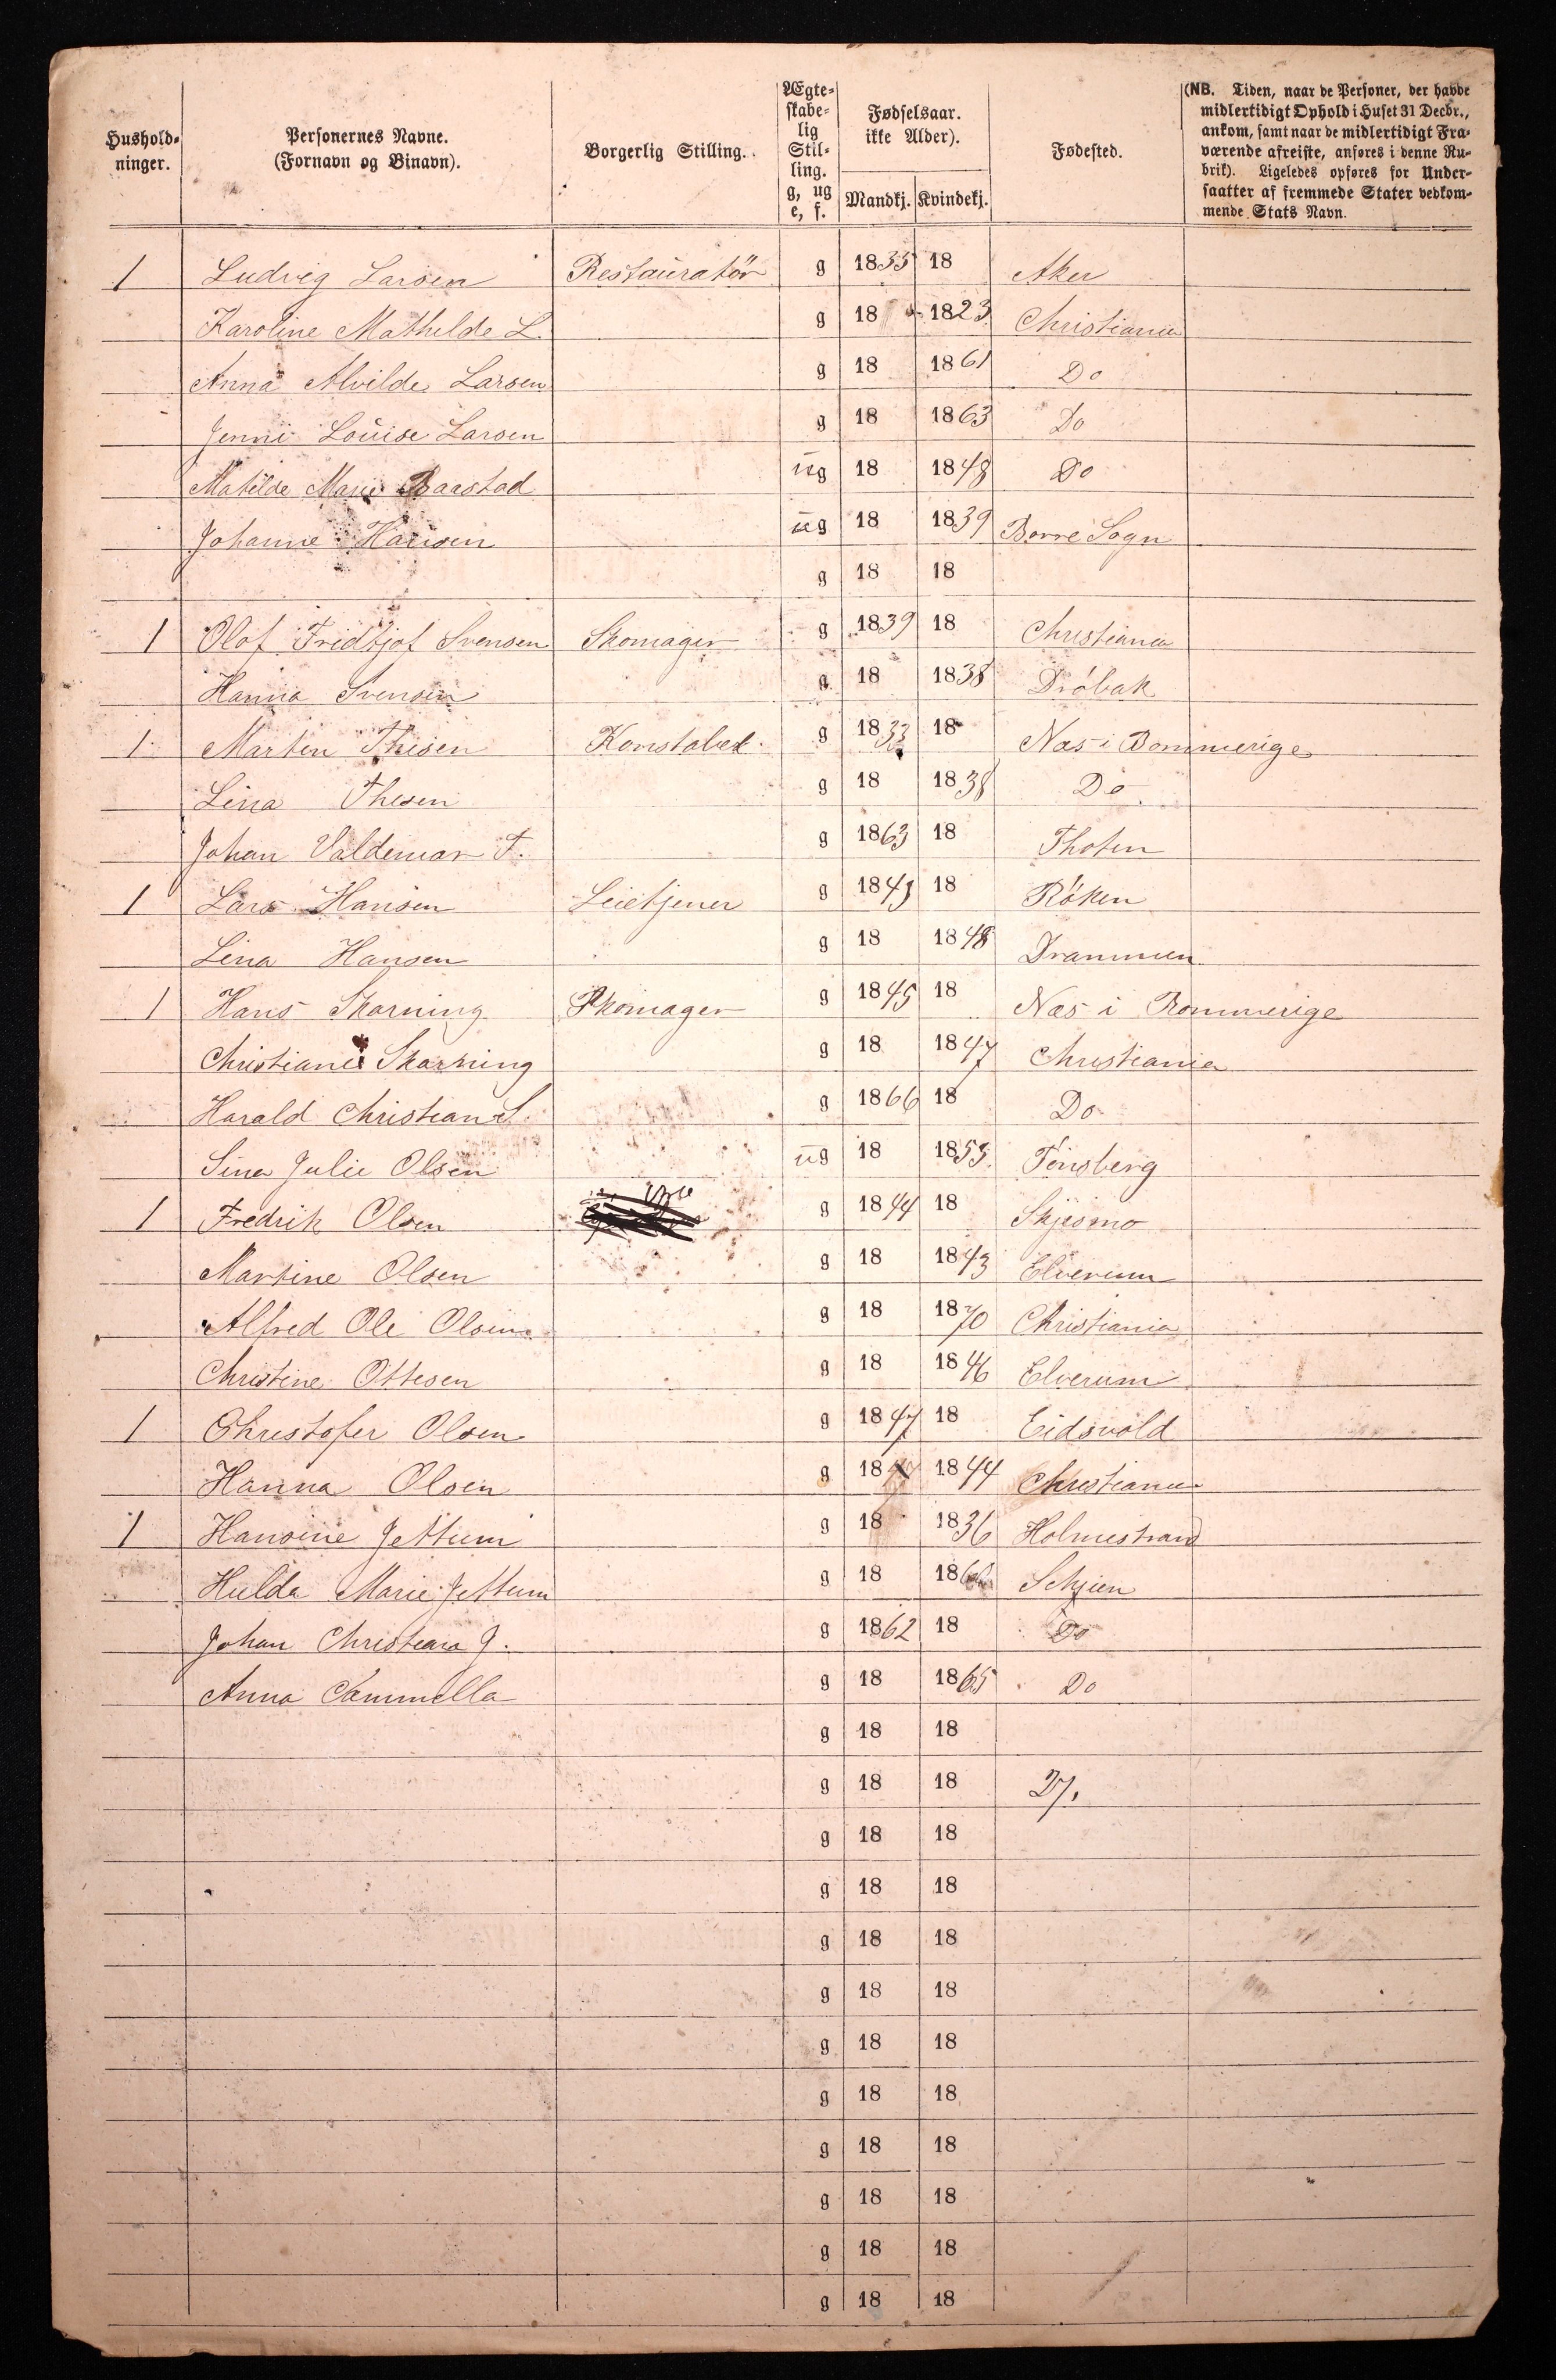 Hushold-
ninger.
Personernes Navne.
(Fornavn og Binavn).
Borgerlig Stilling.
Ægte-
skabe-
lig
Stil-
ling.
g, ug
e, f.
Fødselsaar.
ikke Alder).
Mandkj. Kvindekj.
Fødested.
(NB. Tiden, naar de Personer, der havde
midlertidigt Ophold i Huset 31 Decbr.,
ankom, samt naar de midlertidigt Fra-
værende afreiste, anføres i denne Ru-
brik). Ligeledes opføres for Under-
saatter af fremmede Stater vedkom-
mende Stats Navn.
1 Ludvig Larsen Restauratør g 1835 18 Aker
Karoline Mathilde L. g 18 1823 Christiania
Anna Alvilde Larsen g 18 1861 Do
Jenni Louise Larsen g 18 1863 Do
Matilde Marie Baastad ug 18 1848 Do
Johanne Hansen ug 18 1839 Borre Sogn
g 18 18
1 Olof Fridtjof Svensen Skomager g 1839 18 Christiania
Hanna Svensen g 18 1838 Dröbak
1 Marten Thesen Konstabel g 1833 18 Næs i Rommerige
Lina Thesen g 18 1838 Do
Johan Valdemar T. g 1863 18 Thoten
1 Lars Hansen Leietjener g 1843 18 Röken
Lina Hansen g 18 1848 Drammen
1 Hans Skarning Skomager g 1845 18 Næs i Rommerige
Christiane Skarning g 18 1847 Christiania
Harald Christian S. g 1866 18 Do
Sina Julie Olsen ug 18 1853 Tönsberg
1 Fredrik Olsen g 1844 18 Skjesmo
Martine Olsen g 18 1843 Elverum
Alfred Ole Olsen g 18 1870 Christiania
Christine Ottesen g 18 1846 Elverum
1 Christofer Olsen g 1847 18 Eidsvold
Hanna Olsen g 18 1844 Christiania
1 Hansine Jettum g 18 1836 Holmestrand
Hulda Marie Jettum g 18 18 Schien
Johan Christian J. g 1862 18 Do
Anna Cammilla g 18 1865 Do
g 18 18
g 18 18 27.
g 18 18
g 18 18
g 18 18
g 18 18
g 18 18
g 18 18
g 18 18
g 18 18
g 18 18
g 18 18